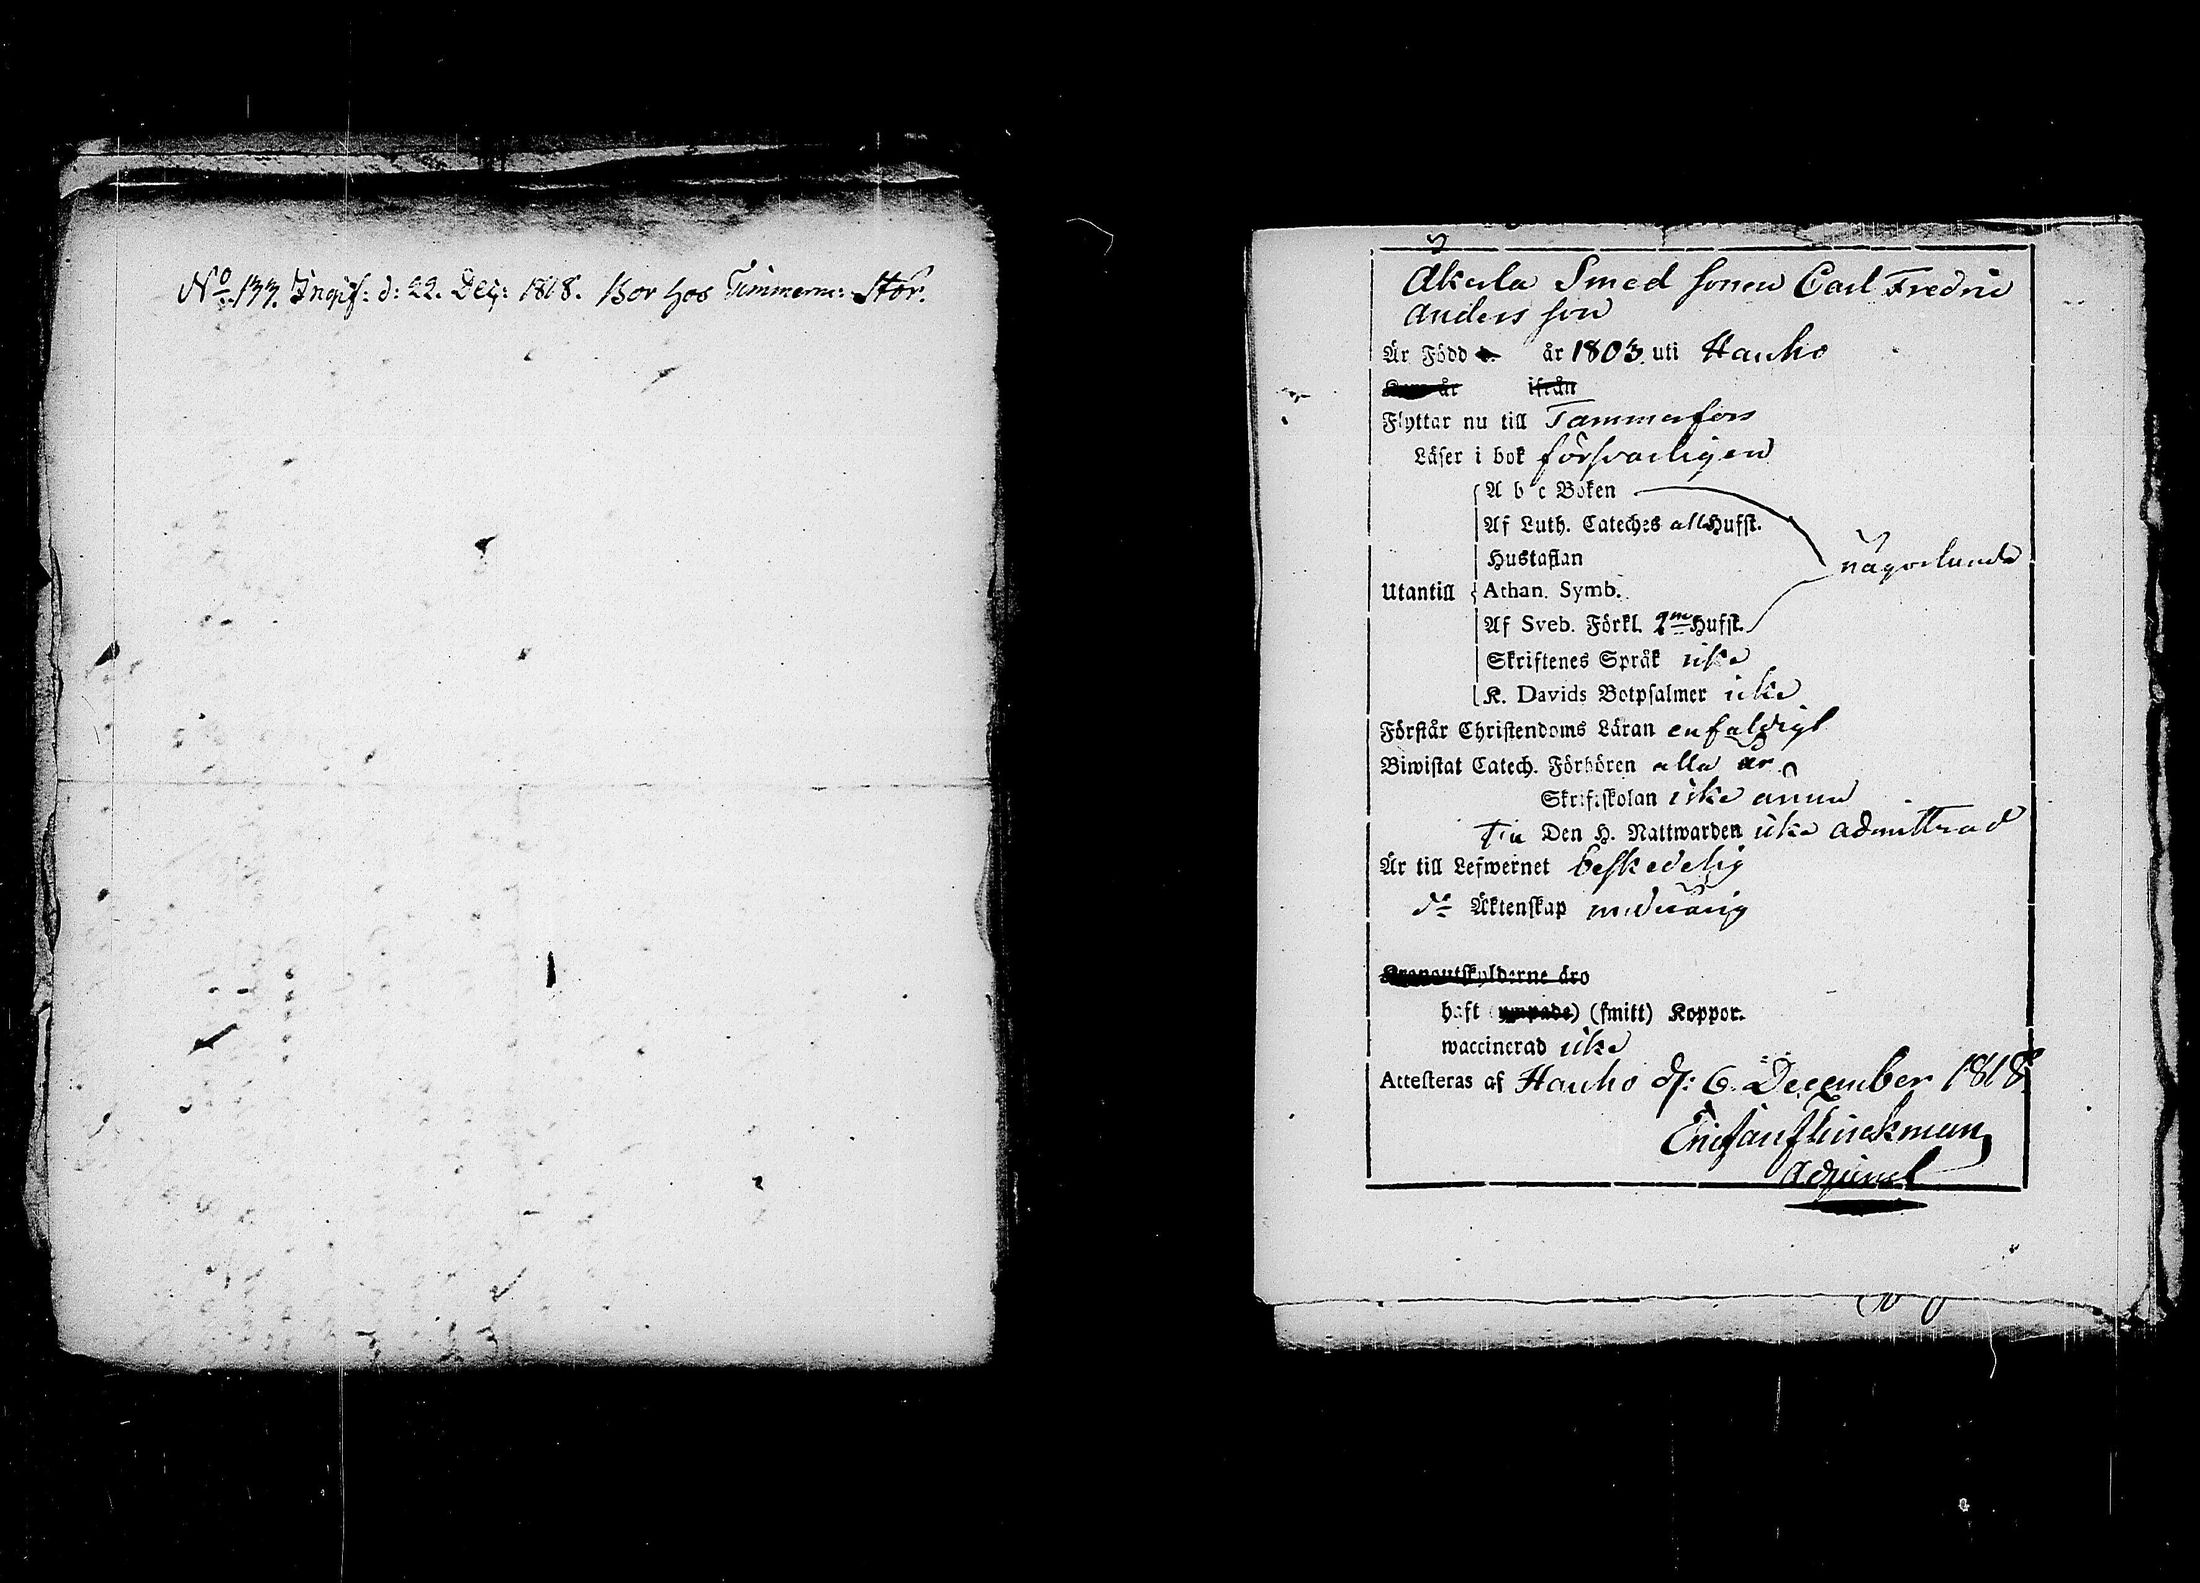 No 133. Ingif: d: 22. Dec: 1818. Bor hos Timmerm: Stör.
Åkerla Smed sonen Carl Fredric
Andersson
Är Född d. år 1803. uti Hauho
Kom år ifrån
Flyttar nu till Tammerfors
Läser i bok försvarligen
A b c Boken
Af Luth. Cateches all Hufst.
Hustaflan
någorlunda
Utantill Athan. Symb.
Af Sveb. Förkl. 2m Hufst.
Skriftenes Språk icke
K. Davids Botpsalmer icke
Förstår Christendoms Läran enfaldigt
Biwistat Catech. Förhören alla år
Skriftskolan icke ännu
Till Den H. Nattwarden icke admittrad
Är till Lefwernet beskedelig
do Äktenskap minderårig
Kronoutskylderne äro
haft (ympade) (smitt) Koppor.
waccinerad icke
Attesteras af Hauho d: 6. December 1818.
Flinckman
Adjunct